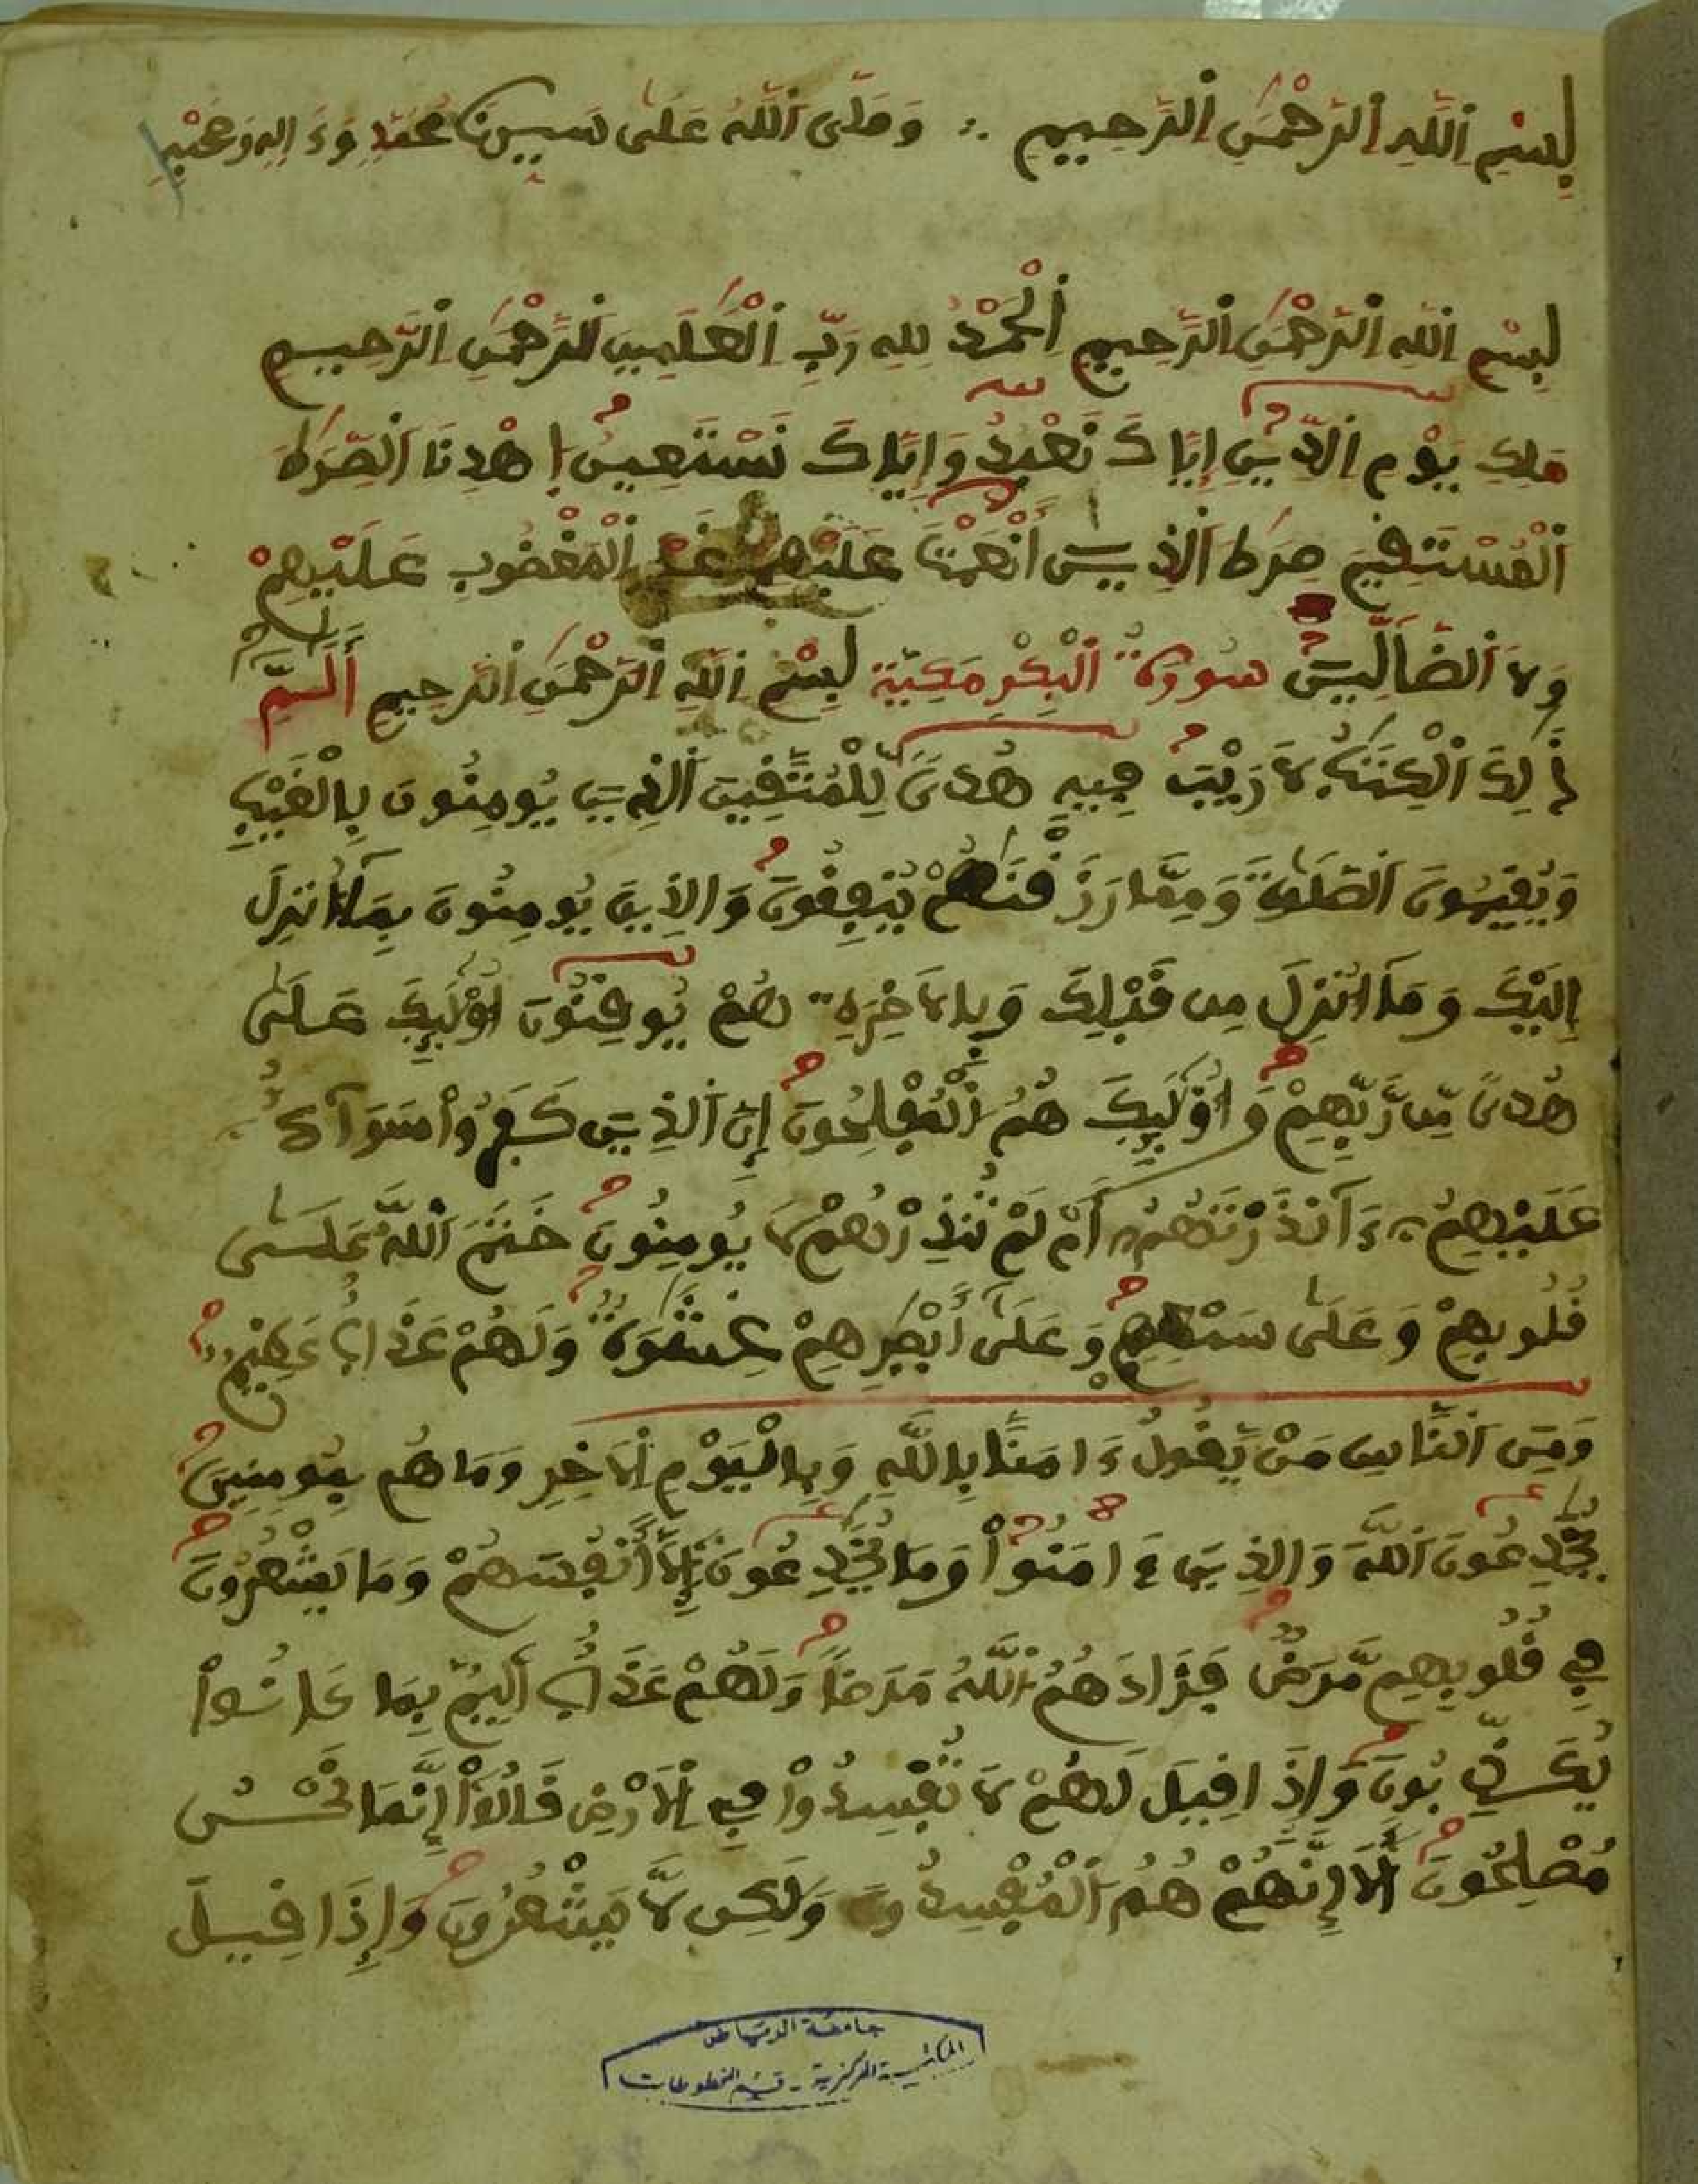 بِسْمِ اِ۬للَّهِ اِ۬لرَّحْمَٰنِ اِ۬لرَّحِيمِ ∴ وَصَلَّى اَ۬للَّهُ عَلَىٰ سَيِّدِنَا مُحَمَّدٍ وَءَالِهِ وَصَحْبِهِ
بِسْمِ اِ۬للَّهِ اِ۬لرَّحْمَٰنِ اِ۬لرَّحِيمِ اِ۬لْحَمْدُ لِلهِ رَبِّ اِ۬لْعَٰلَمِينَ اَ۬لرَّحْمَٰنِ اِ۬لرَّحِيمِ
مَلِكِ يَوْمِ اِ۬لدِّينِ إِيَّاكَ نَعْبُدُ وَإِيَّاكَ نَسْتَعِينُ اِ۪هْدِنَا اَ۬لصِّرَٰطَ
اَ۬لْمُسْتَقِيمَ صِرَٰطَ اَ۬لذِينَ أَنْعَمْتَ عَلَيْهِمْ غَيْرِ اِ۬لْمَغْضُوبِ عَلَيْهِمْ
وَلَا اَ۬لضَّآلِّينَ سُورَةُ اُ۬لْبِكْرِ مَكِّيَّة بِسْمِ اِ۬للَّهِ اِ۬لرَّحْمَٰنِ اِ۬لرَّحِيمِ أَلَٓمِّٓ
ذَٰلِكَ اَ۬لْكِتَٰبُ لَا رَيْبَ فِيهِ هُدىً لِّلْمُتَّقِينَ اَ۬لذِينَ يُومِنُونَ بِالْغَيْبِ
وَيُقِيمُونَ اَ۬لصَّلَوٰةَ وَمِمَّا رَزَقْنَٰهُمْ يُنفِقُونَ وَالذِينَ يُومِنُونَ بِمَآ أُنزِلَ
إِلَيْكَ وَمَآ أُنزِلَ مِن قَبْلِكَ وَبِالَاخِرَةِ هُمْ يُوقِنُونَ أُوْلَٰٓئِكَ عَلَىٰ
هُدىً مِّن رَّبِّهِمْ وَأُوْلَٰٓئِكَ هُمُ اُ۬لْمُفْلِحُونَ إِنَّ اَ۬لذِينَ كَفَرُواْ سَوَآءٌ
عَلَيْهِمُۥٓ ءَآنذَرْتَهُمُۥٓ أَمْ لَمْ تُنذِرْهُمْ لَا يُومِنُونَ خَتَمَ اَ۬للَّهُ عَلَىٰ
قُلُوبِهِمْ وَعَلَىٰ سَمْعِهِمْ وَعَلَىٰٓ أَبْصَٰرِهِمْ غِشَٰوَةٌ وَلَهُمْ عَذَابٌ عَظِيمٌ
وَمِنَ اَ۬لنَّاسِ مَنْ يَّقُولُ ءَامَنَّا بِاللَّهِ وَبِالْيَوْمِ اِ۬لَاخِرِ وَمَا هُم بِمُومِنِينَ
يُخَٰدِعُونَ اَ۬للَّهَ وَالذِينَ ءَامَنُواْ وَمَا يُخَٰدِعُونَ إِلَّآ أَنفُسَهُمْ وَمَا يَشْعُرُونَ
فِي قُلُوبِهِم مَّرَضٌ فَزَادَهُمُ اُ۬للَّهُ مَرَضاً وَلَهُمْ عَذَابٌ أَلِيمٌ بِمَا كَانُواْ
يُكَذِّبُونَ وَإِذَا قِيلَ لَهُمْ لَا تُفْسِدُواْ فِي اِ۬لَارْضِ قَالُوٓاْ إِنَّمَا نَحْنُ
مُصْلِحُونَ أَلَآ إِنَّهُمْ هُمُ اُ۬لْمُفْسِدُونَ وَلَٰكِن لَّا يَشْعُرُونَ وَإِذَا قِيلَ
جامعة الرياض
المكتبة المركزية - قسم المخطوطات